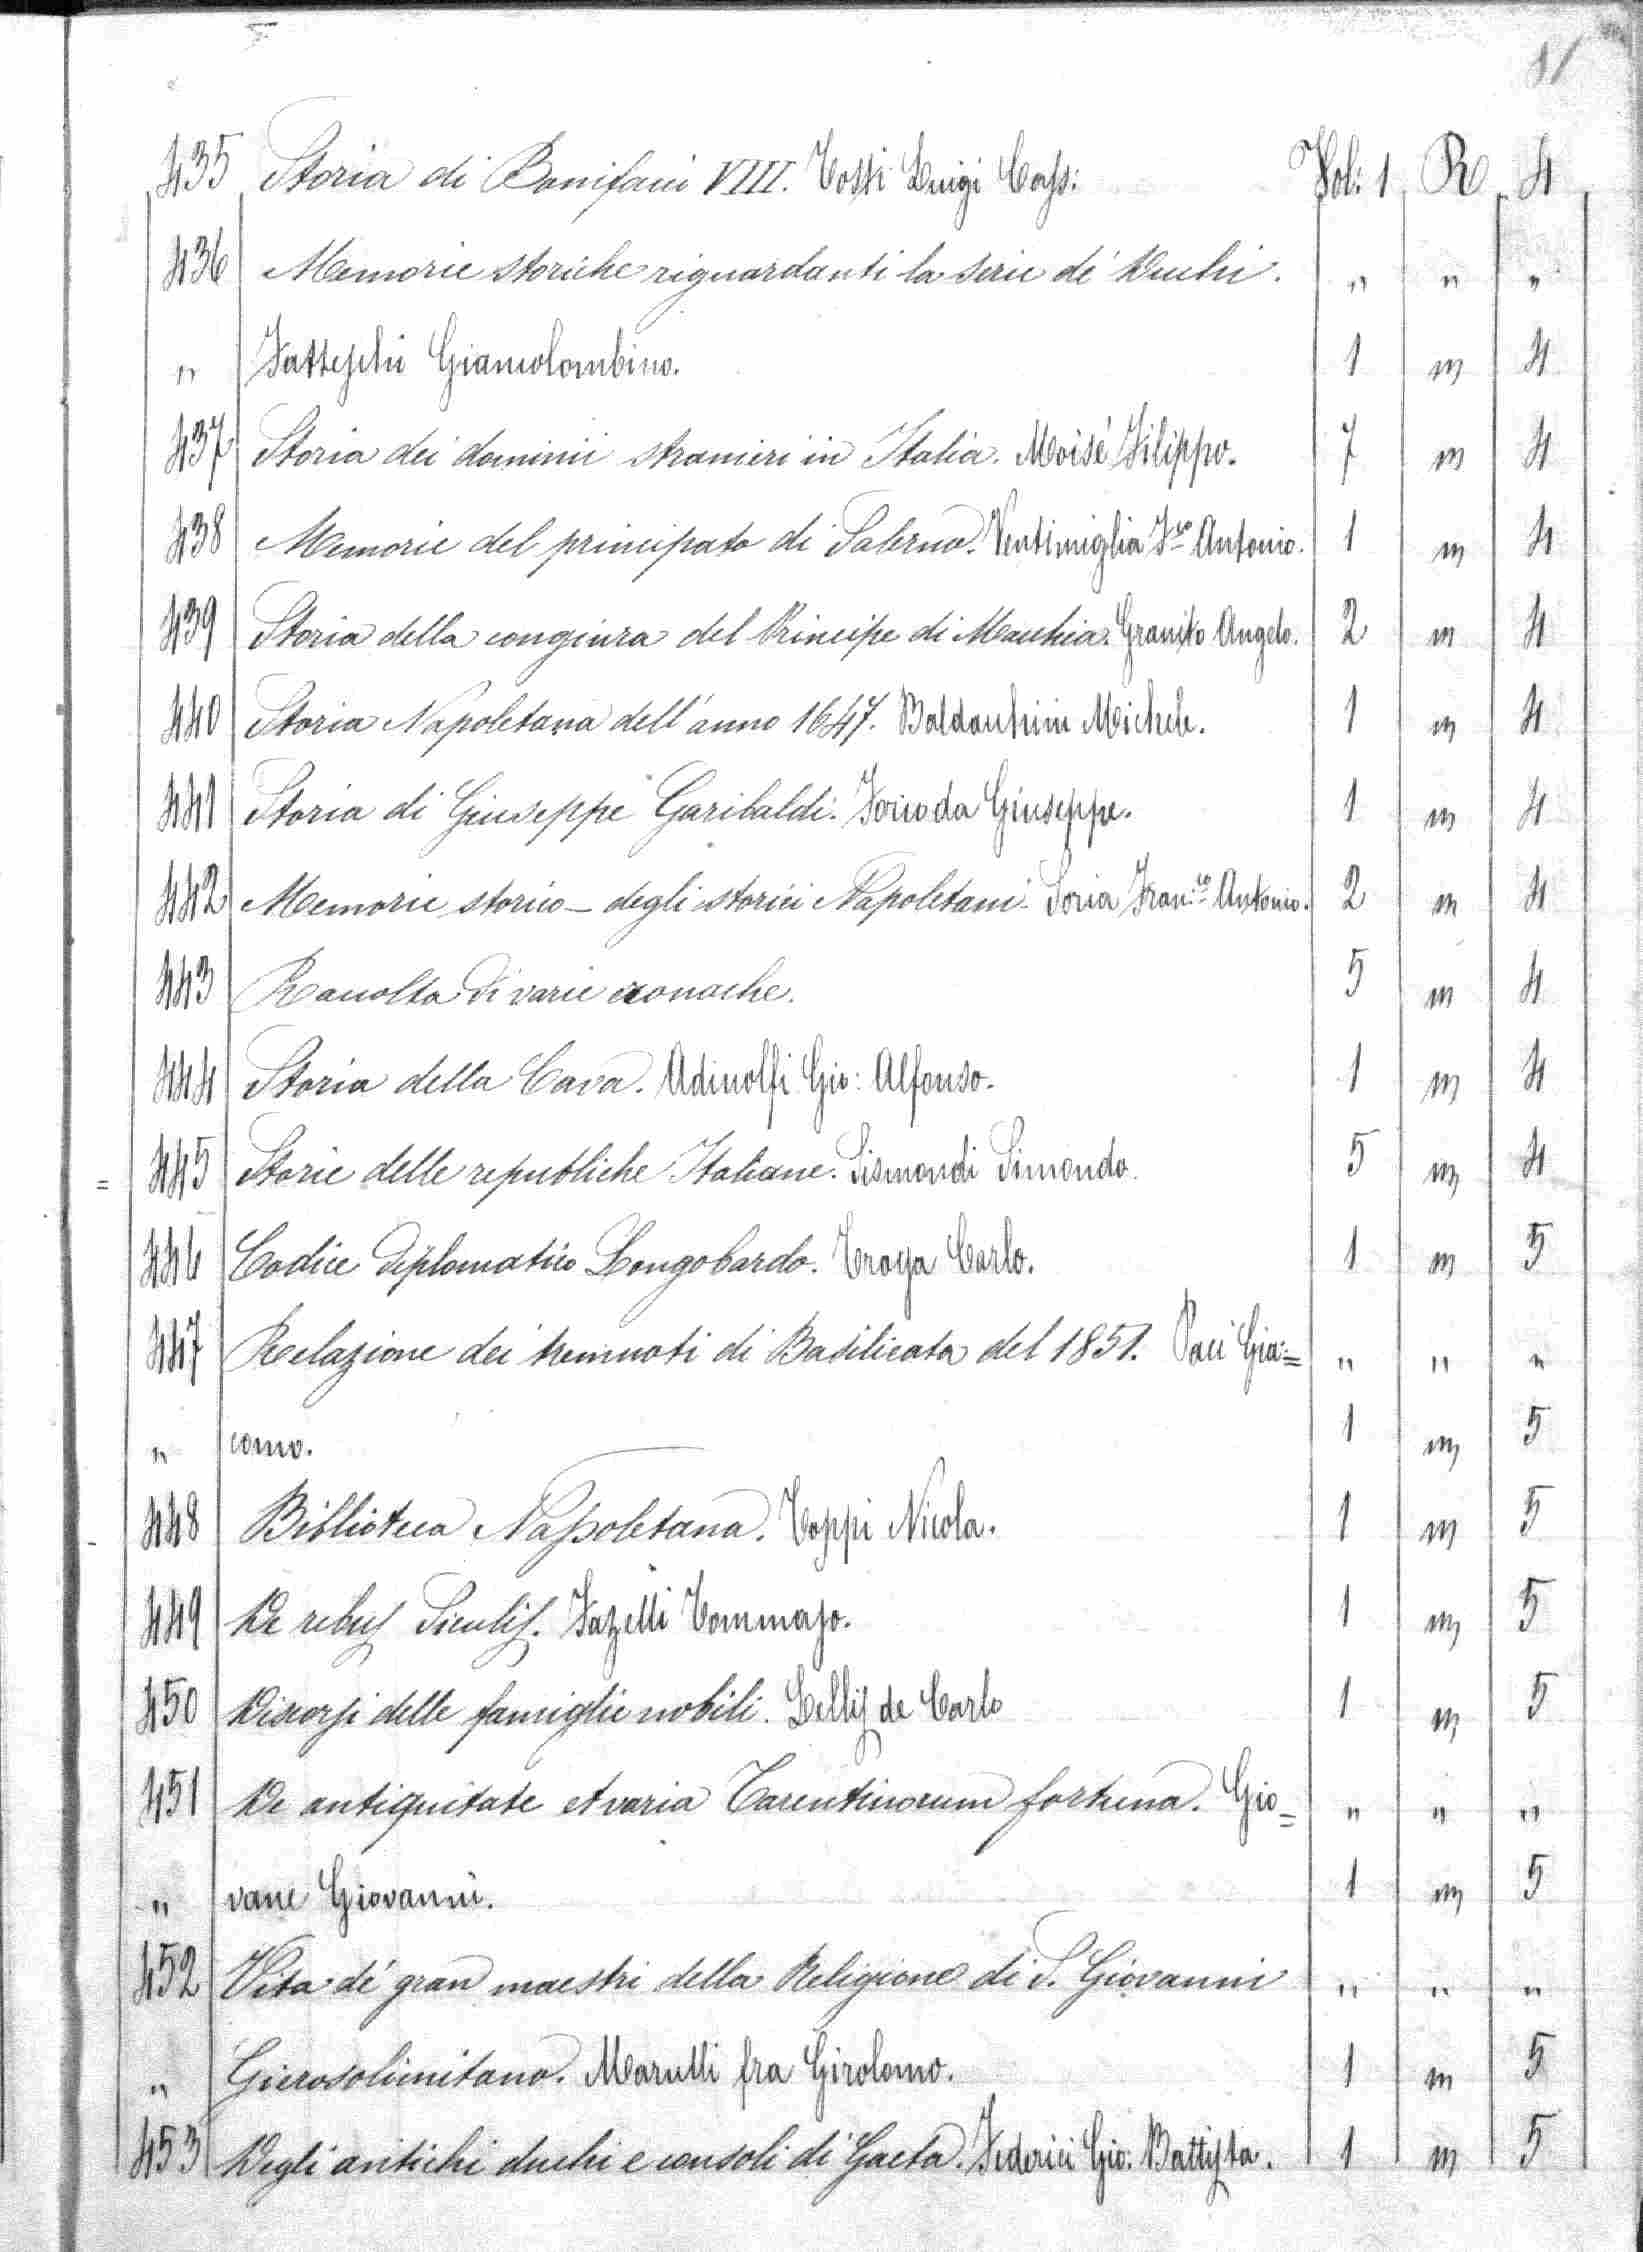 435 Storia di Bonifacii VIII. Tosti Luigi Cass: Vol: 1 R 4
436 Memorie storiche riguardanti la serie de' Duchi. " " "
" Fatteschi Giancolombino. 1 m 4
437 Storia dei dominii stranieri in Italia. Moisé Filippo. 7 m 4
438 Memorie del principato di Salerno. Ventimiglia Fco Antonio. 1 m 4
439 Storia della congiura del Principe di Macchia. Granito Angelo. 2 m 4
440 Storia Napoletana dell'anno 1647. Baldacchini Michele. 1 m 4
441 Storia di Giuseppe Garibaldi. Giuseppe. 1 m 4
442 Memorie storico - degli storici Napoletani. Soria Franco Antonio. 2 m 4
443 Raccolta di varie cronache. 5 m 4
444 Storia della Cava. Adinolfi Gio: Alfonso. 1 m 4
= 445 Storie delle republiche Italiane. Sismondi Simondo. 5 m 4
446 Codice diplomatico Longobardo. Troya Carlo. 1 m 5
447 Relazione dei tremuoti di Basilicata del 1851. Paci Gia= " " "
" como. 1 m 5
- 448 Biblioteca Napoletana. Toppi Nicola. 1 m 5
449 De rebus Siculis. Fazelli Tommaso. 1 m 5
450 Discorsi delle famiglie nobili. Lellis de Carlo 1 m 5
451 De antiquitate et varia Tarentinorum fortuna. Gio= " " "
" vane Giovanni. 1 m 5
452 Vita de' gran maestri della Religione di S. Giovanni " " "
" Gierosolimitano. Marulli fra Girolomo. 1 m 5
453 Degli antichi duchi e consoli di Gaeta. Federici Gio: Battista. 1 m 5